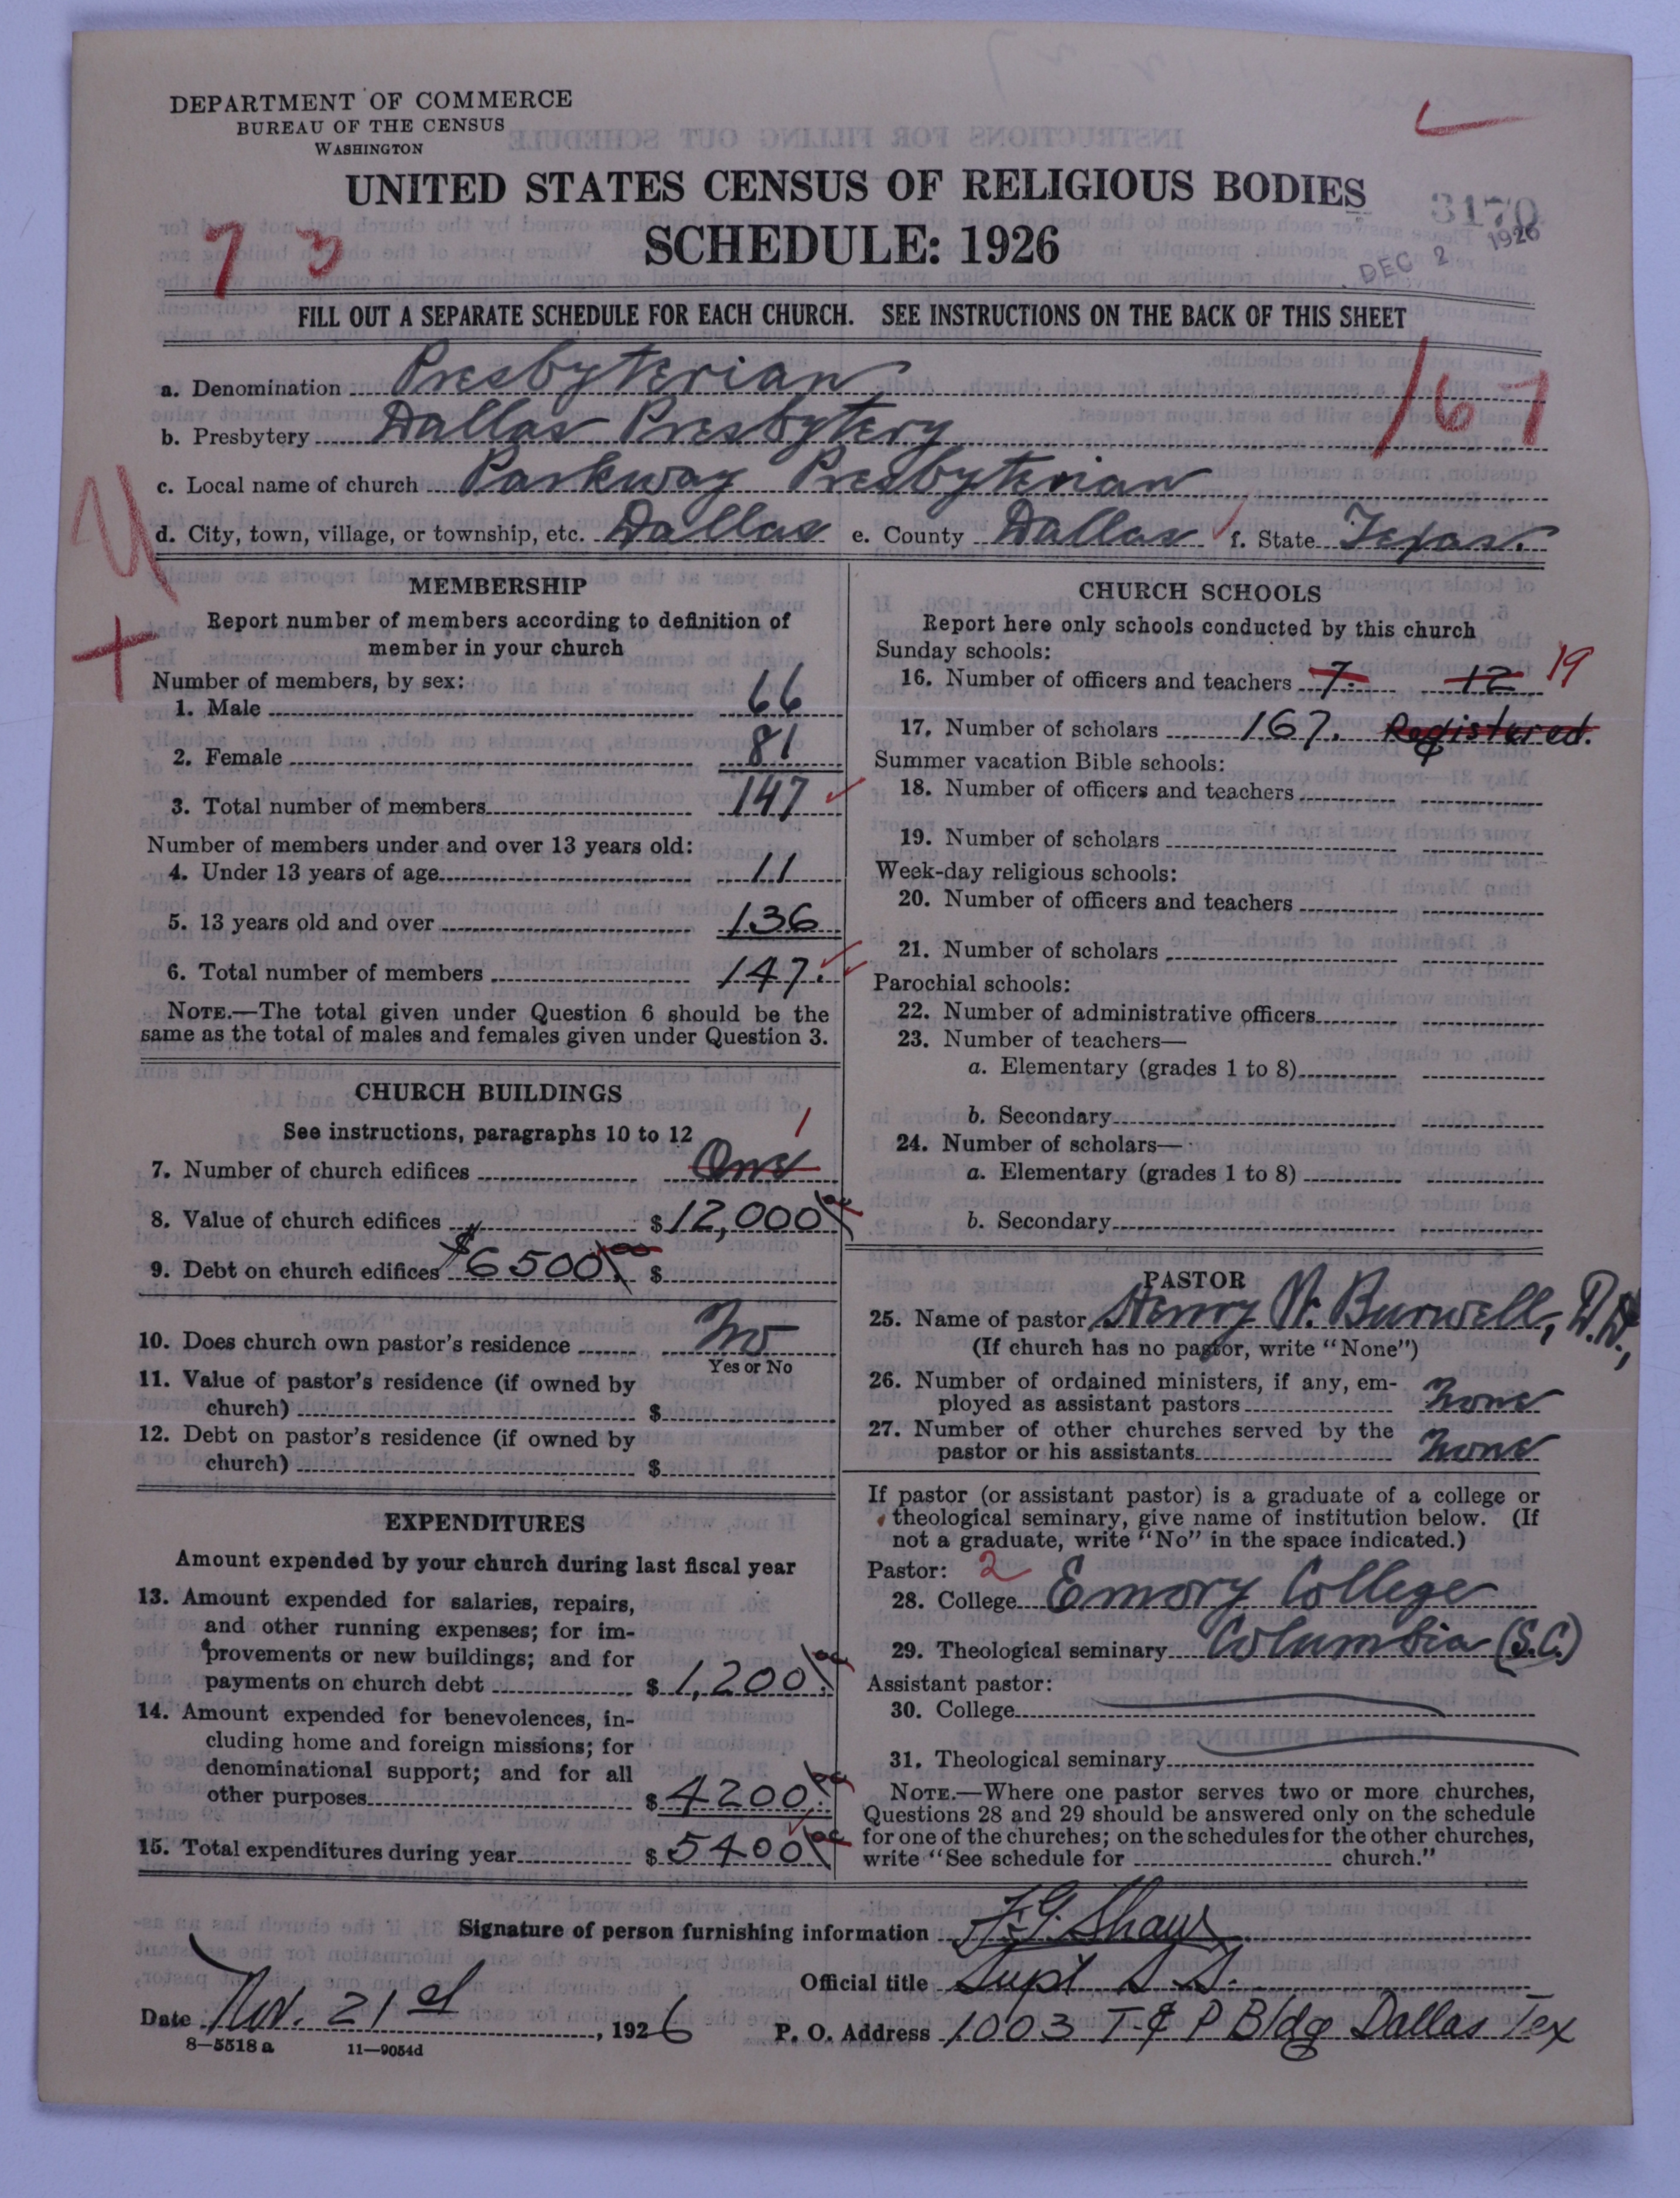 DEPARTMENT OF COMMERCE
BUREAU OF THE CENSUS
WASHINGTON
UNITED STATES CENSUS OF RELIGIOUS BODIES
SCHEDULE: 1926
3170
DEC 2 1926
7 3
FILL OUT A SEPARATE SCHEDULE FOR EACH CHURCH. SEE INSTRUCTIONS ON THE BACK OF THIS SHEET
a. Denomination Presbyterian
167
b. Presbytery Dallas Presbytery
c. Local name of church Parkway Presbyterian
d. City, town, village, or township, etc. Dallas e. County Dallas f. State Texas.
MEMBERSHIP
Report number of members according to definition of
member in your church
Number of members, by sex:
1. Male 66
2. Female 81
3. Total number of members 147
Number of members under and over 13 years old:
4. Under 13 years of age 11
5. 13 years old and over 136
6. Total number of members 147.
NOTE.—The total given under Question 6 should be the
same as the total of males and females given under Question 3.
CHURCH BUILDINGS
See instructions, paragraphs 10 to 12
1
7. Number of church edifices One
8. Value of church edifices $12,000.00
9. Debt on church edifices $6500.00 $
10. Does church own pastor's residence No
Yes or No
11. Value of pastor's residence (if owned by
church) $
12. Debt on pastor's residence (if owned by
church) $
EXPENDITURES
Amount expended by your church during last fiscal year
13. Amount expended for salaries, repairs,
and other running expenses; for im-
provements or new buildings; and for
payments on church debt $1,200.00
14. Amount expended for benevolences, in-
cluding home and foreign missions; for
denominational support; and for all
other purposes $4200.00
15. Total expenditures during year $5400.00
CHURCH SCHOOLS
Report here only schools conducted by this church
Sunday schools:
16. Number of officers and teachers 7. 12 19
17. Number of scholars 167. Registered.
Summer vacation Bible schools:
18. Number of officers and teachers
19. Number of scholars
Week-day religious schools:
20. Number of officers and teachers
21. Number of scholars
Parochial schools:
22. Number of administrative officers
23. Number of teachers—
a. Elementary (grades 1 to 8)
b. Secondary
24. Number of scholars—
a. Elementary (grades 1 to 8)
b. Secondary
PASTOR
25. Name of pastor Henry W. Burwell, D.D.,
(If church has no pastor, write "None")
26. Number of ordained ministers, if any, em-
ployed as assistant pastors None
27. Number of other churches served by the
pastor or his assistants None
If pastor (or assistant pastor) is a graduate of a college or
theological seminary, give name of institution below. (If
not a graduate, write "No" in the space indicated.)
Pastor: 2
28. College Emory College
29. Theological seminary Columbia (S.C.)
Assistant pastor:
30. College
31. Theological seminary
NOTE.—Where one pastor serves two or more churches,
Questions 28 and 29 should be answered only on the schedule
for one of the churches; on the schedules for the other churches,
write "See schedule for church."
Signature of person furnishing information F. G. Shaw
Official title Supt S. S.
Date Nov. 21st, 1926 P. O. Address 1003 T & P Bldg Dallas Tex
8—5518 a 11—9054d